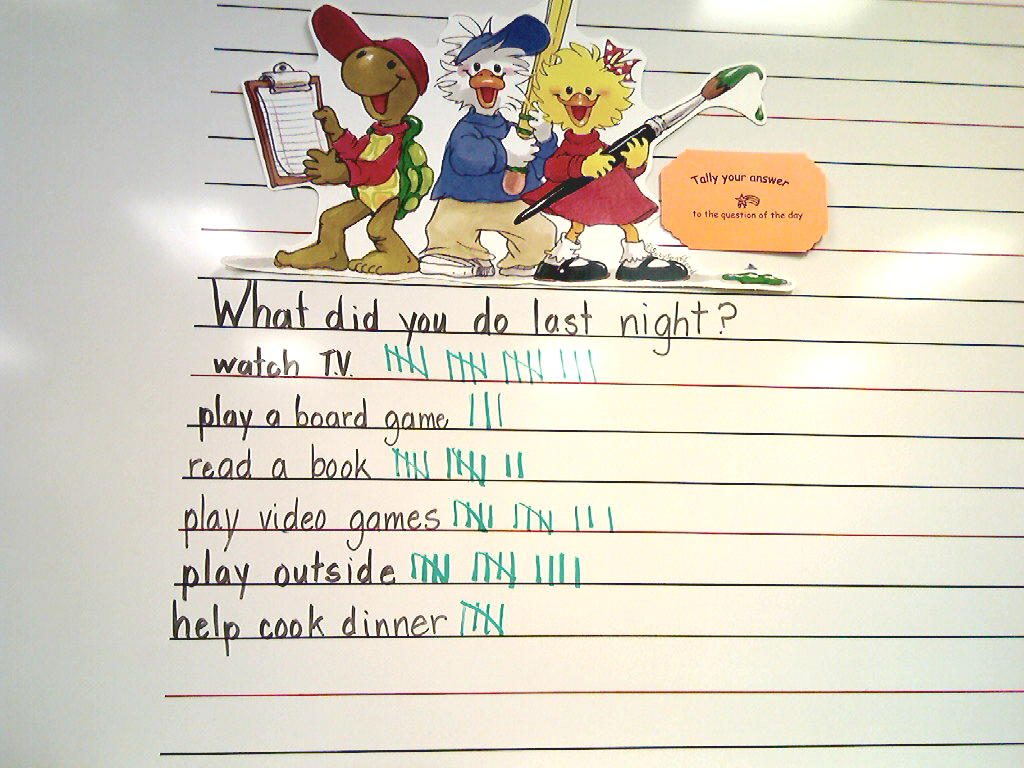 Tally your answer
to the question of the day
What did you do last night?
watch T.V.
play a board game
read a book
play video games
play outside
help cook dinner